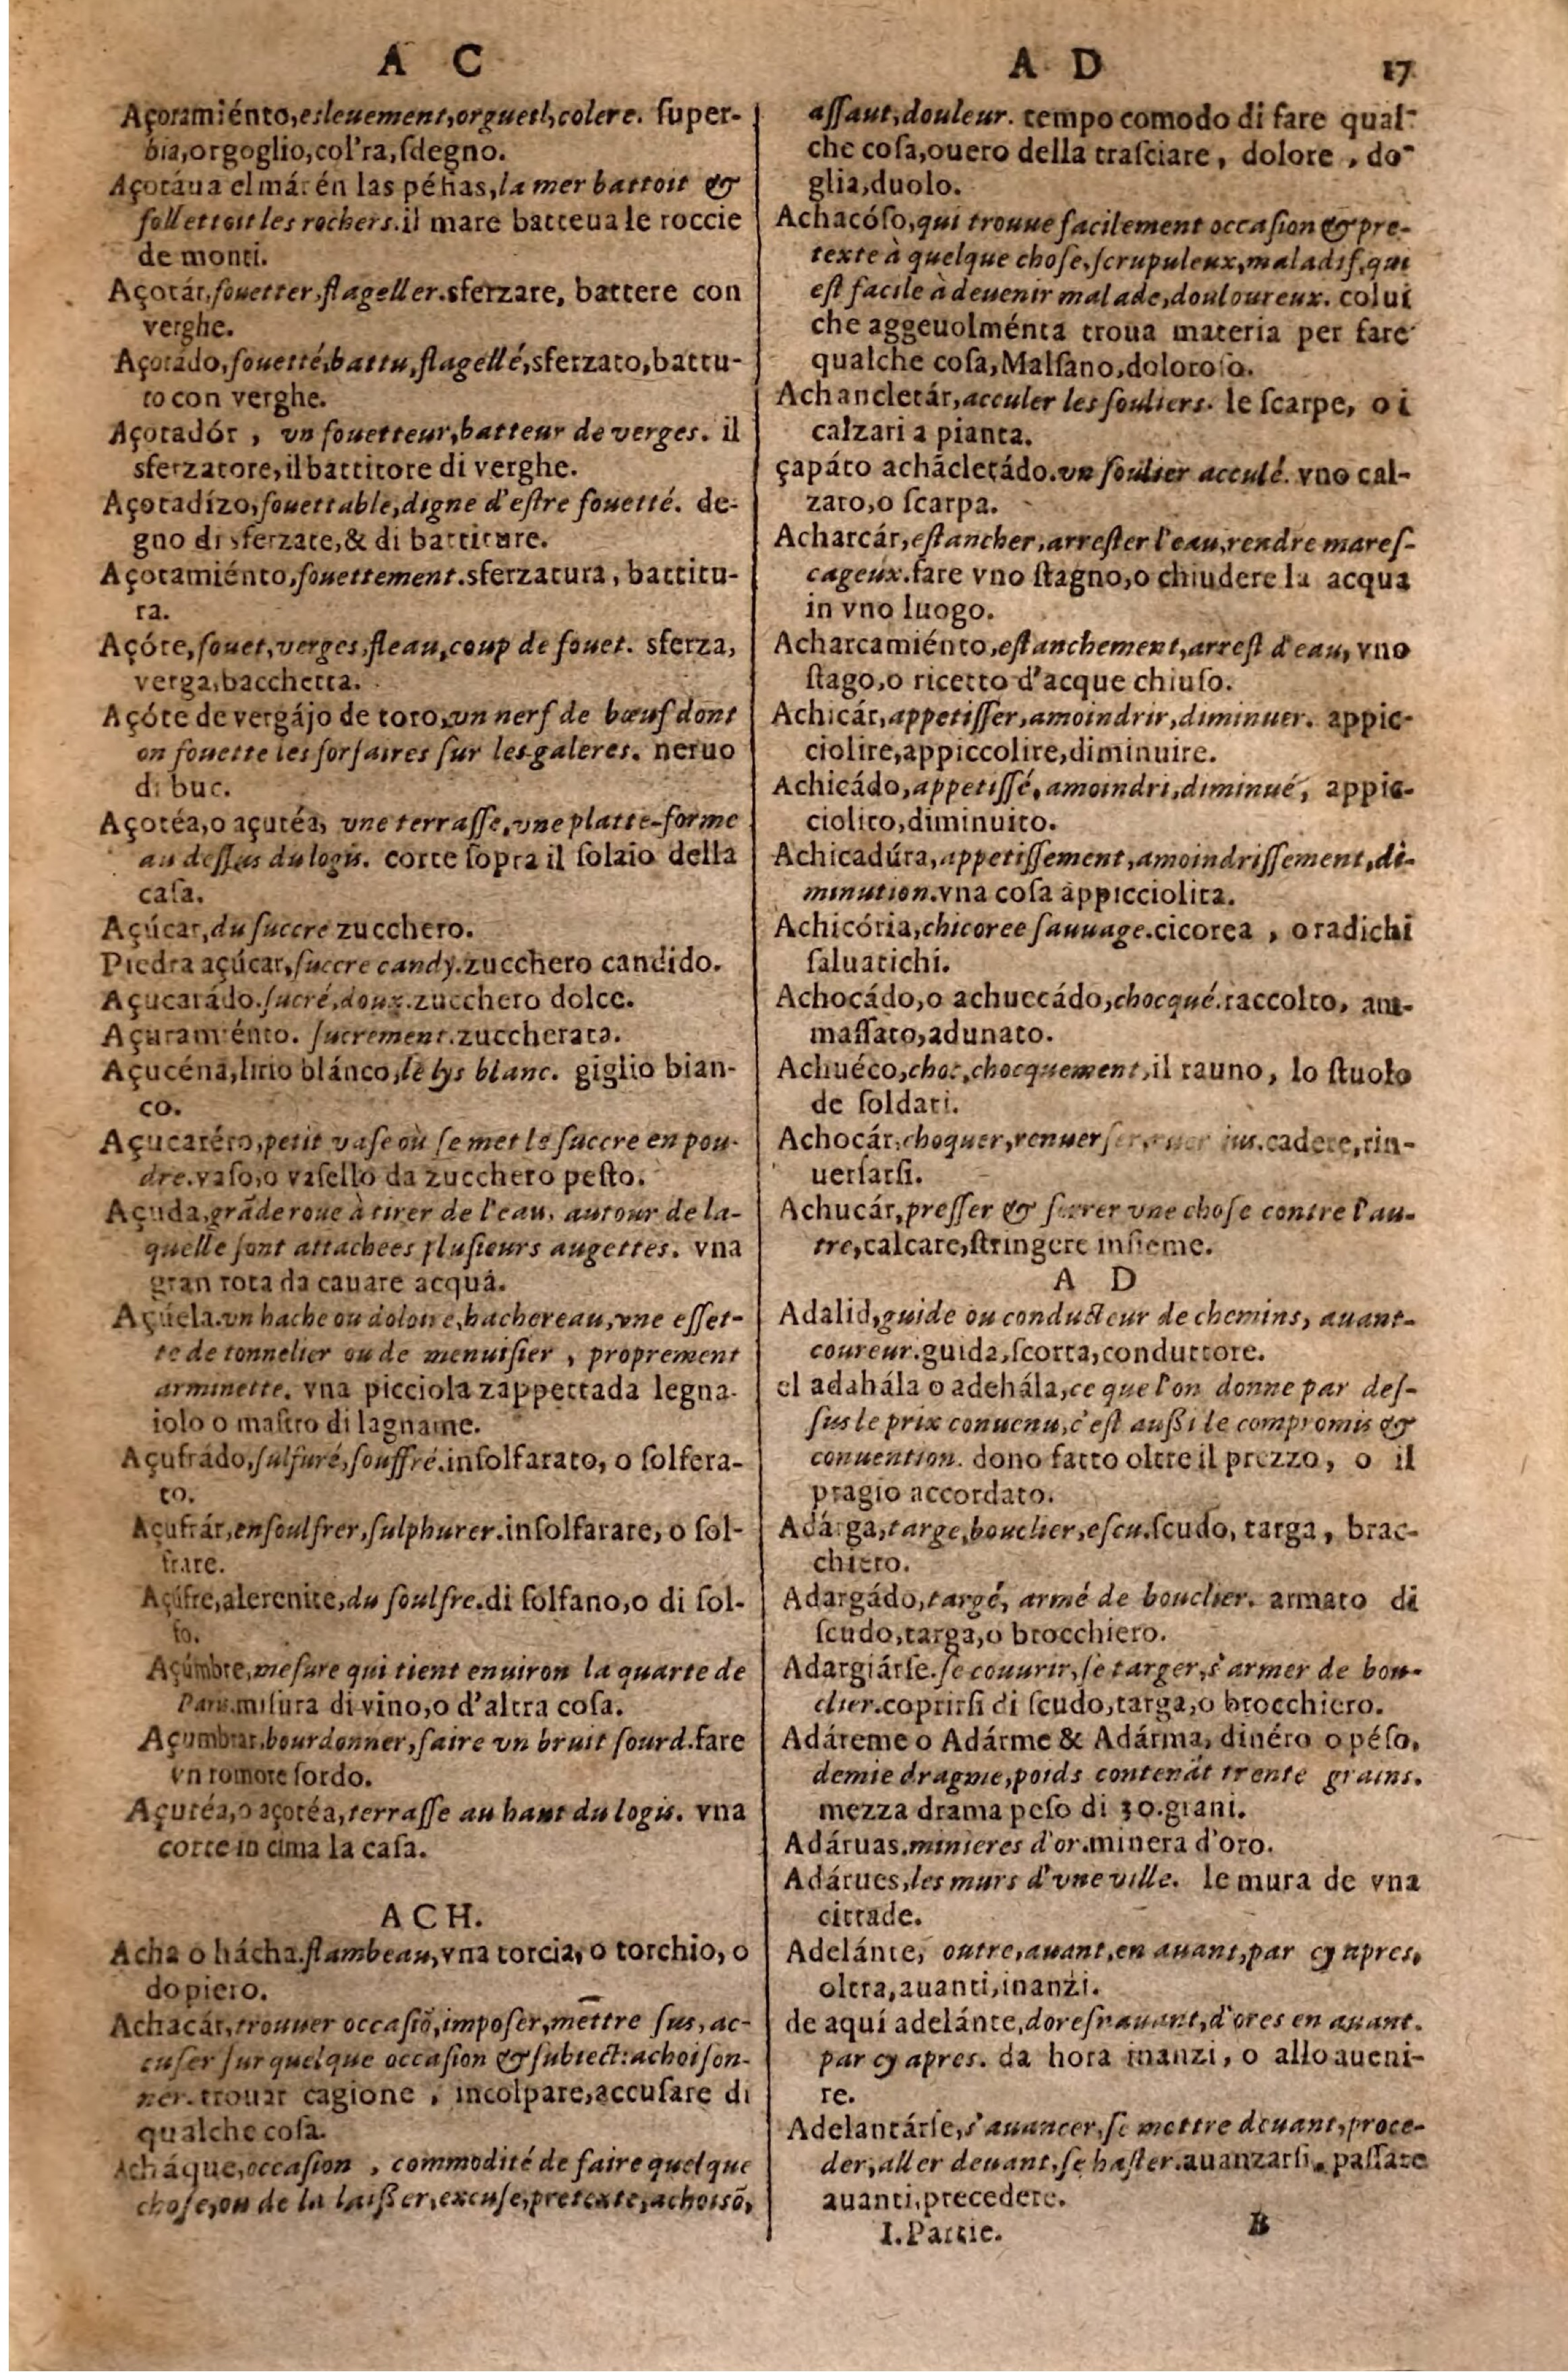 A C
Açoramiénto,esleuement,orgueil,colere. ſuper-
bia,orgoglio,col'ra,ſdegno.
Açotáua el már én las péñas,la mer battoit &
follettoit les rochers.il mare batteua le roccie
de monti.
Açotár,fouetter,flageller.sferzare, battere con
verghe.
Açotádo,fouetté,battu,flagellé,sferzato,battu-
to con verghe.
Açotadór , vn fouetteur,batteur de verges. il
sferzatore,il battitore di verghe.
Açotadízo,fouettable,digne d'eſtre fouetté. de-
gno di sferzate,& di battiture.
Açotamiénto,fouettement.sferzatura, battitu-
ra.
Açóte,fouet,verges,fleau,coup de fouet. sferza,
verga,bacchetta.
Açóte de vergájo de toro,vn nerf de bœuf dont
on fouette les forſaires ſur les galeres. neruo
di buc.
Açotéa,o açutéa, vne terraſſe,vne platte-forme
au deſſus du logis. corte ſopra il ſolaio della
caſa.
Açúcar,du ſuccre zucchero.
Piedra açúcar,ſuccre candy.zucchero candido.
Açucarádo.ſucré,doux.zucchero dolce.
Açuramiénto. ſucrement.zuccherata.
Açucéna,lirio blánco,le lys blanc. giglio bian-
co.
Açucaréro,petit vaſe où ſe met le ſuccre en pou-
dre.vaſo,o vaſello da zucchero peſto.
Açuda,grāde roue à tirer de l'eau, autour de la-
quelle ſont attachees pluſieurs augettes. vna
gran rota da cauare acquá.
Açúela.vn hache ou doloire,hachereau,vne eſſet-
te de tonnelier ou de menuiſier , proprement
arminette. vna picciola zappettada legna-
iolo o maſtro di lagname.
Açufrádo,ſulfuré,ſouffré.inſolfarato, o ſolfera-
to.
Açufrár,enſoulfrer,ſulphurer.inſolfarare, o ſol-
frare.
Açúfre,alerenite,du ſoulfre.di ſolfano,o di ſol-
fo.
Açúmbre,meſure qui tient enuiron la quarte de
Paris.miſura di vino,o d'altra coſa.
Açumbrar.bourdonner,faire vn bruit ſourd.fare
vn romore ſordo.
Açutéa,o açotéa,terraſſe au haut du logis. vna
corte in cima la caſa.
ACH.
Acha o hácha.flambeau,vna torcia, o torchio, o
dopiero.
Achacár,trouuer occaſiō,impoſer,mettre ſus, ac-
cuſer ſur quelque occaſion & ſubiect:achoiſon-
ner.trouar cagione , incolpare,accuſare di
qualche coſa.
Acháque,occaſion , commodité de faire quelque
choſe,ou de la laißer,excuſe,pretexte,achoisō,
A D 17
aſſaut,douleur. tempo comodo di fare qual-
che coſa,ouero della traſciare, dolore , do-
glia,duolo.
Achacóſo,qui trouue facilement occaſion & pre-
texte à quelque choſe,ſcrupuleux,maladif,qui
eſt facile à deuenir malade,douloureux. colui
che aggeuolménta troua materia per fare
qualche coſa,Malſano,doloroſo.
Achancletár,acculer les ſouliers. le ſcarpe, o i
calzari a pianta.
çapáto achācletádo.vn ſoulier acculé. vno cal-
zaro,o ſcarpa.
Acharcár,eſtancher,arreſter l'eau,rendre mareſ-
cageux.fare vno ſtagno,o chiudere la acqua
in vno luogo.
Acharcamiénto,eſtanchement,arreſt d'eau, vno
ſtago,o ricetto d'acque chiuſo.
Achicár,appetiſſer,amoindrir,diminuer. appic-
ciolire,appiccolire,diminuire.
Achicádo,appetiſſé,amoindri,diminué, appic-
ciolito,diminuito.
Achicadúra,appetiſſement,amoindriſſement,di-
minution.vna coſa appicciolita.
Achicória,chicoree ſauuage.cicorea , o radichi
ſaluatichi.
Achocádo,o achuecádo,chocqué.raccolto, am-
maſſato,adunato.
Achuéco,choc,chocquement,il rauno, lo ſtuolo
de ſoldati.
Achocár,choquer,renuerſer,ruer ius.cadere,rin-
uerſarſi.
Achucár,preſſer & ſerrer vne choſe contre l'au-
tre,calcare,ſtringere inſieme.
A D
Adalid,guide ou conducteur de chemins, auant-
coureur.guida,ſcorta,conduttore.
el adahála o adehála,ce que l'on donne par deſ-
ſus le prix conuenu,c'eſt außi le compromis &
conuention. dono fatto oltre il prezzo, o il
pragio accordato.
Adárga,targe,bouclier,eſcu.ſcudo, targa, brac-
chiero.
Adargádo,targé, armé de bouclier. armato di
ſcudo,targa,o brocchiero.
Adargiárſe.ſe couurir,ſe targer,s'armer de bou-
clier.coprirſi di ſcudo,targa,o brocchiero.
Adáreme o Adárme & Adárma, dinéro o péſo,
demie dragme,poids contenāt trente grains.
mezza drama peſo di 30.grani.
Adáruas.minieres d'or.minera d'oro.
Adárues,les murs d'vne ville. le mura de vna
cittade.
Adelánte, outre,auant,en auant,par cy apres,
oltra,auanti,inanzi.
de aquí adelánte,doreſnauant,d'ores en auant.
par cy apres. da hora inanzi, o allo aueni-
re.
Adelantárſe,s'auancer,ſe mettre deuant,proce-
der,aller deuant,ſe haſter.auanzarſi, paſſare
auanti,precedere.
I.Partie. B